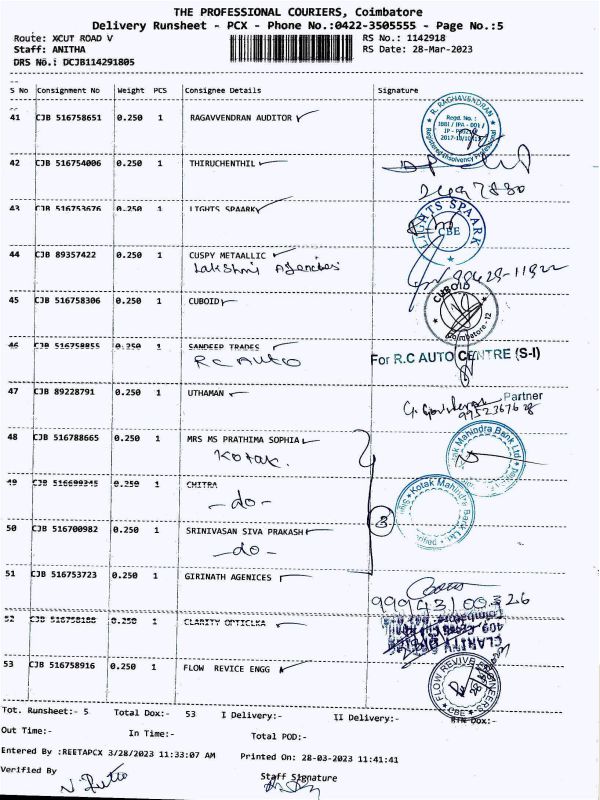 THE PROFESSIONAL COURIERS, Coimbatore
Delivery Runsheet - PCX - Phone No.:0422-3505555 - Page No.:5
Route: XCUT ROAD V RS No.: 1142918
Staff: ANITHA RS Date: 28-Mar-2023
DRS No.: DCJB114291805
S No Consignment No Weight PCS Consignee Details Signature
41 CJB 516758651 0.250 1 RAGAVVENDRAN AUDITOR
R. RAGHAVENDRAN
Regd. No. :
IBBI / IPA - 001 /
Registered Insolvency Professional
42 CJB 516754006 0.250 1 THIRUCHENTHIL
43 CJB 516753676 0.250 1 LIGHTS SPAARK
LIGHTS SPAARK
CBE
44 CJB 89357422 0.250 1 CUSPY METAALLIC
Lakshmi Agencies
45 CJB 516758306 0.250 1 CUBOID
CUBOID
Coimbatore - 12
46 CJB 516758855 0.250 1 SANDEEP TRADES
RC AUTO
For R.C AUTO CENTRE (S-I)
Partner
47 CJB 89228791 0.250 1 UTHAMAN
48 CJB 516788665 0.250 1 MRS MS PRATHIMA SOPHIA
Kotak.
Kotak Mahindra Bank Ltd
49 CJB 516699345 0.250 1 CHITRA
-do-
Kotak Mahindra Bank Ltd
3
50 CJB 516700982 0.250 1 SRINIVASAN SIVA PRAKASH
-do-
51 CJB 516753723 0.250 1 GIRINATH AGENICES
52 CJB 516758188 0.250 1 CLARITY OPTICLKA
CLARITY
53 CJB 516758916 0.250 1 FLOW REVICE ENGG
FLOW REVIVE ENGINEERS
CBE
Tot. Runsheet:- 5 Total Dox:- 53 I Delivery:- II Delivery:- RTN Dox:-
Out Time:- In Time:- Total POD:-
Entered By :REETAPCX 3/28/2023 11:33:07 AM Printed On: 28-03-2023 11:41:41
Verified By Staff Signature